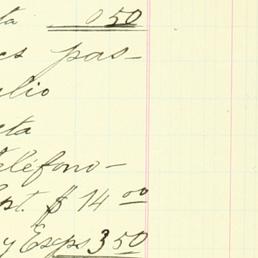 ta 0 50
es pas-
lio
ta
teléfono-
pt. $ 14 00
y Exps 3 50